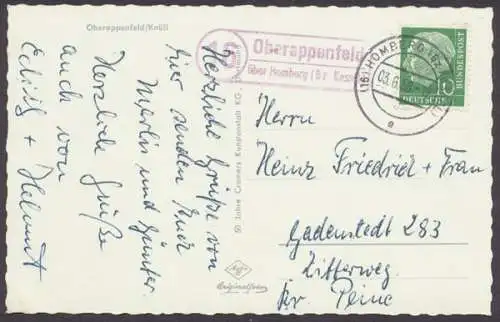 Oberappenfeld/Knüll
Herzliche Grüße von
hier senden Euch
und Günter
Herzliche Grüße
auch von
+ Helmut
50 Jahre Cramers Kunstanstalt KG
Agfa
Originalfoto
16
Oberappenfeld
über Homberg (Bz Kassel)
(16) HOMBERG (BZ
03.8.
a
DEUTSCHE
BUNDESPOST
10
Herrn
Heinz Friedrich + Frau
Gadenstedt 283
Zitterweg
Kr Peine